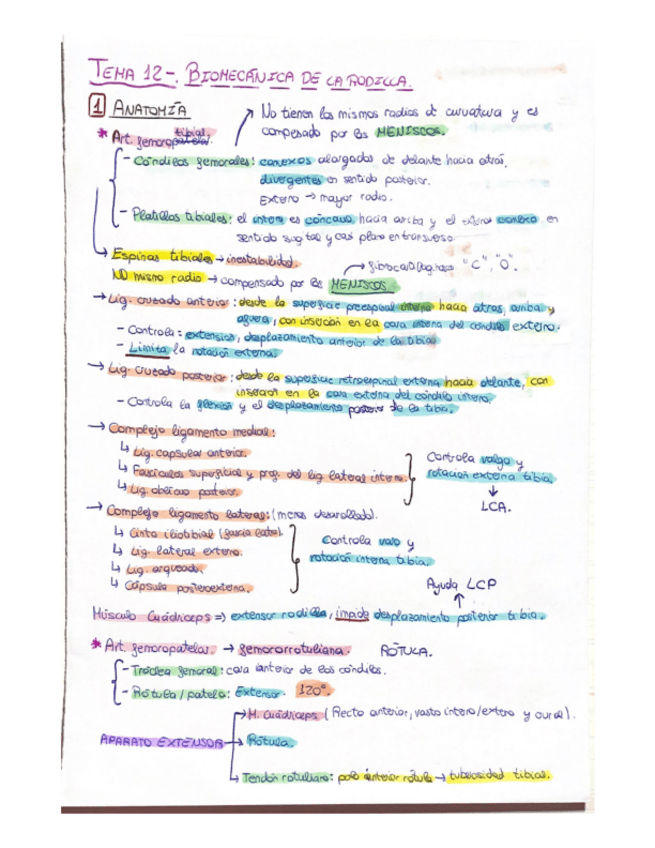 TEMA 12-. BIOMECÁNICA DE LA RODILLA.
1 ANATOMÍA
No tienen los mismos radios de curvatura y es
compesado por los MENISCOS.
* Art. femorotibial.
- Cóndilos femorales: convexos alargados de delante hacia atrás,
divergentes en sentido posterior.
Externo → mayor radio.
- Platillos tibiales: el interno es cóncavo hacia arriba y el externo convexo en
sentido sagital y casi plano en transverso.
Espinas tibiales → inestabilidad.
NO mismo radio → compensado por los MENISCOS. → fibrocartílagos "C", "O".
→ Lig. cruzado anterior: desde la superficie preespinal interna hacia atras, arriba y
afuera, con inserción en la cara interna del cóndilo externo.
- Controla: extension, desplazamiento anterior de la tibia
- Limita la rotación externa.
→ Lig. cruzado posterior: desde la superficie retroespinal externa hacia delante, con
inserción en la cara externa del cóndilo interno.
- Controla la flexión y el desplazamiento posterior de la tibia.
→ Complejo ligamento medial:
↳ Lig. capsular anterior.
↳ Fascículos superficial y prof. del lig lateral interno.
↳ Lig. oblicuo posterior.
Controla valgo y
rotación externa tibia.
↓
LCA.
→ Complejo ligamento lateral: (menos desarrollado).
↳ Cinta iliotibial (fascia lata).
↳ Lig. lateral externo.
↳ Lig. arqueado.
↳ Cápsula posteroexterna.
Controla varo y
rotación interna tibia.
Ayuda LCP
↑
Músculo Cuádriceps ⇒ extensor rodilla, impide desplazamiento posterior tibia.
* Art. femoropatelar. → femororrotuliana. RÓTULA.
- Tróclea femoral: cara anterior de los cóndilos.
- Rótula / patela: Extensor. 120°.
APARATO EXTENSOR
→ M. Cuádriceps (Recto anterior, vasto interno/externo y crural).
→ Rótula.
↳ Tendón rotuliano: polo anterior rótula → tuberosidad tibial.